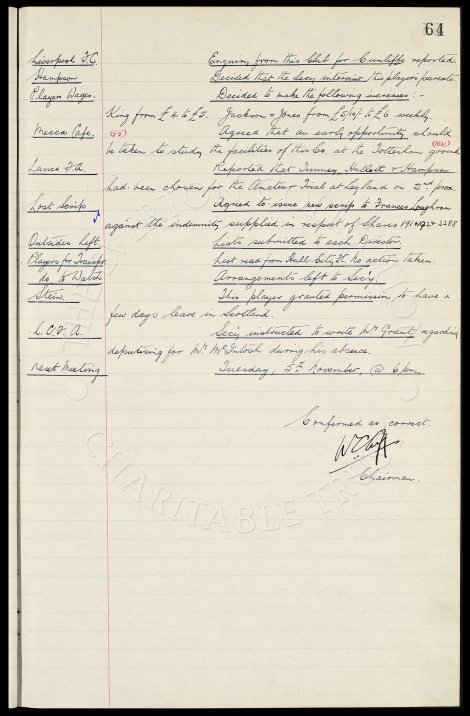 64
Liverpool F.C. Enquiry from this Club for Cunliffe reported.
Hampson Decided that the Secy. interview this players parents.
Players Wages. Decided to make the following increases :-
King from £4 to £5. Jackson & Jones from £5/10/- to £6 weekly.
Mecca Cafe. (65) Agreed that an early opportunity should
be taken to study the facilities of this Co. at the Tottenham ground
Lancs F.A. Reported that Turmey, Hullett & Hampson
had been chosen for the Amateur Trial at Leyland on 2nd prox.
Lost Scrip Agreed to issue new scrip to Frances Loughran
against the indemnity supplied in respect of Shares 2288
Outsides Left Lists submitted to each Director.
Players for Transfer. List read from Hull City F.C. No action taken.
do. to Watch Arrangements left to Sec'y.
Stein. This player granted permission to have a
few days leave in Scotland.
L.C.F.A. Secy. instructed to write Mr Grant regarding
deputising for Mr McIntosh during his absence.
Next Meeting Tuesday, 5th November, @ 6pm.
Confirmed as correct.
Chairman.
CHARITABLE TRUST